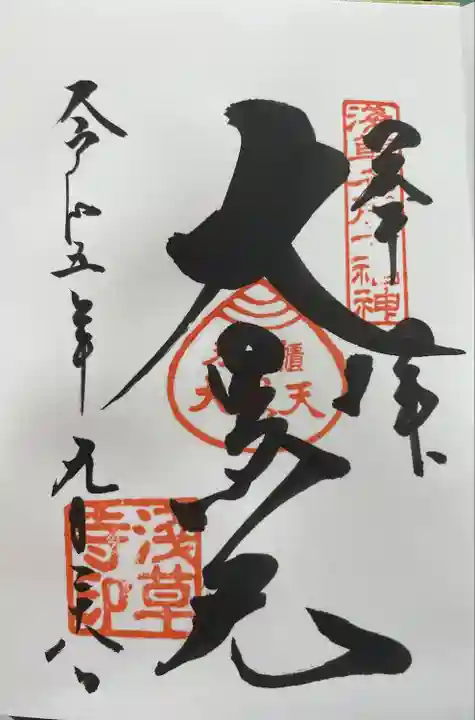 奉拝
淺草名所七福神
大黒天
米櫃
大黒天
令和五年九月二十八日
浅草寺印